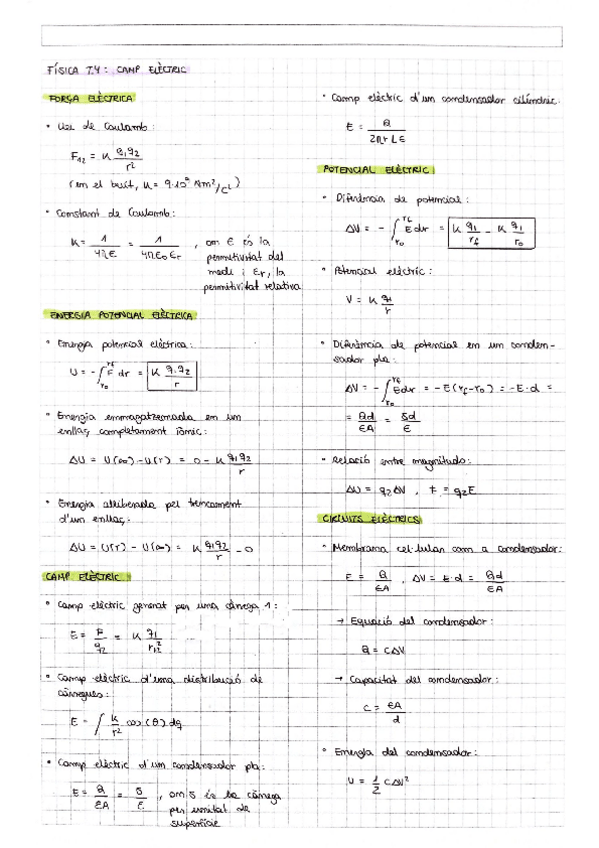 FÍSICA T.4: CAMP ELÈCTRIC
FORÇA ELÈCTRICA
• Llei de Coulomb:
F₁₂ = K q₁q₂ / r²
(en el buit, K = 9·10⁹ Nm²/C²)
• Constant de Coulomb:
K = 1 / 4πε = 1 / 4πε₀εr , on ε és la
permitivitat del
medi i εr, la
permitivitat relativa
ENERGIA POTENCIAL ELÈCTRICA
• Energia potencial elèctrica:
U = - ∫ F dr = K q₁·q₂ / r
• Energia emmagatzemada en un
enllaç completament iònic:
ΔU = U(∞) - U(r) = 0 - K q₁q₂ / r
• Energia alliberada pel trencament
d'un enllaç:
ΔU = U(r) - U(∞) = K q₁q₂ / r - 0
CAMP ELÈCTRIC
• Camp elèctric generat per una càrrega 1:
E = F / q₂ = K q₁ / r₁₂²
• Camp elèctric d'una distribució de
càrregues:
E = ∫ K / r² cos (θ) dq
• Camp elèctric d'un condensador pla:
E = Q / εA = σ / ε , on σ és la càrrega
per unitat de
superfície
• Camp elèctric d'un condensador cilíndric.
E = Q / 2πrLε
POTENCIAL ELÈCTRIC
• Diferència de potencial:
ΔV = - ∫ E dr = K q₁ / rf - K q₁ / r₀
• Potencial elèctric:
V = K q₁ / r
• Diferència de potencial en un conden-
sador pla:
ΔV = - ∫ E dr = -E(rf-r₀) = -E·d =
= Qd / εA = σd / ε
• Relació entre magnituds:
ΔU = q₂ΔV , F = q₂E
CIRCUITS ELÈCTRICS
• Membrana cel·lular com a condensador:
E = Q / εA , ΔV = E·d = Qd / εA
→ Equació del condensador:
Q = CΔV
→ Capacitat del condensador:
C = εA / d
• Energia del condensador:
U = 1/2 CΔV²